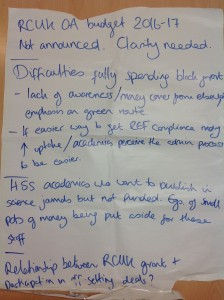 RCUK OA budget 2016-17
Not announced. Clarity needed.
Difficulties fully spending block grant
- lack of awareness/money comes from elsewhere
emphasis on green route
- If easier way to get REF compliance may
↑ uptake/academics perceive the admin process
to be easier.
HSS academics who want to publish in
science journals but not funded. Egs. of small
pots of money being put aside for these
staff
Relationship between RCUK grant &
participation in offsetting deals?